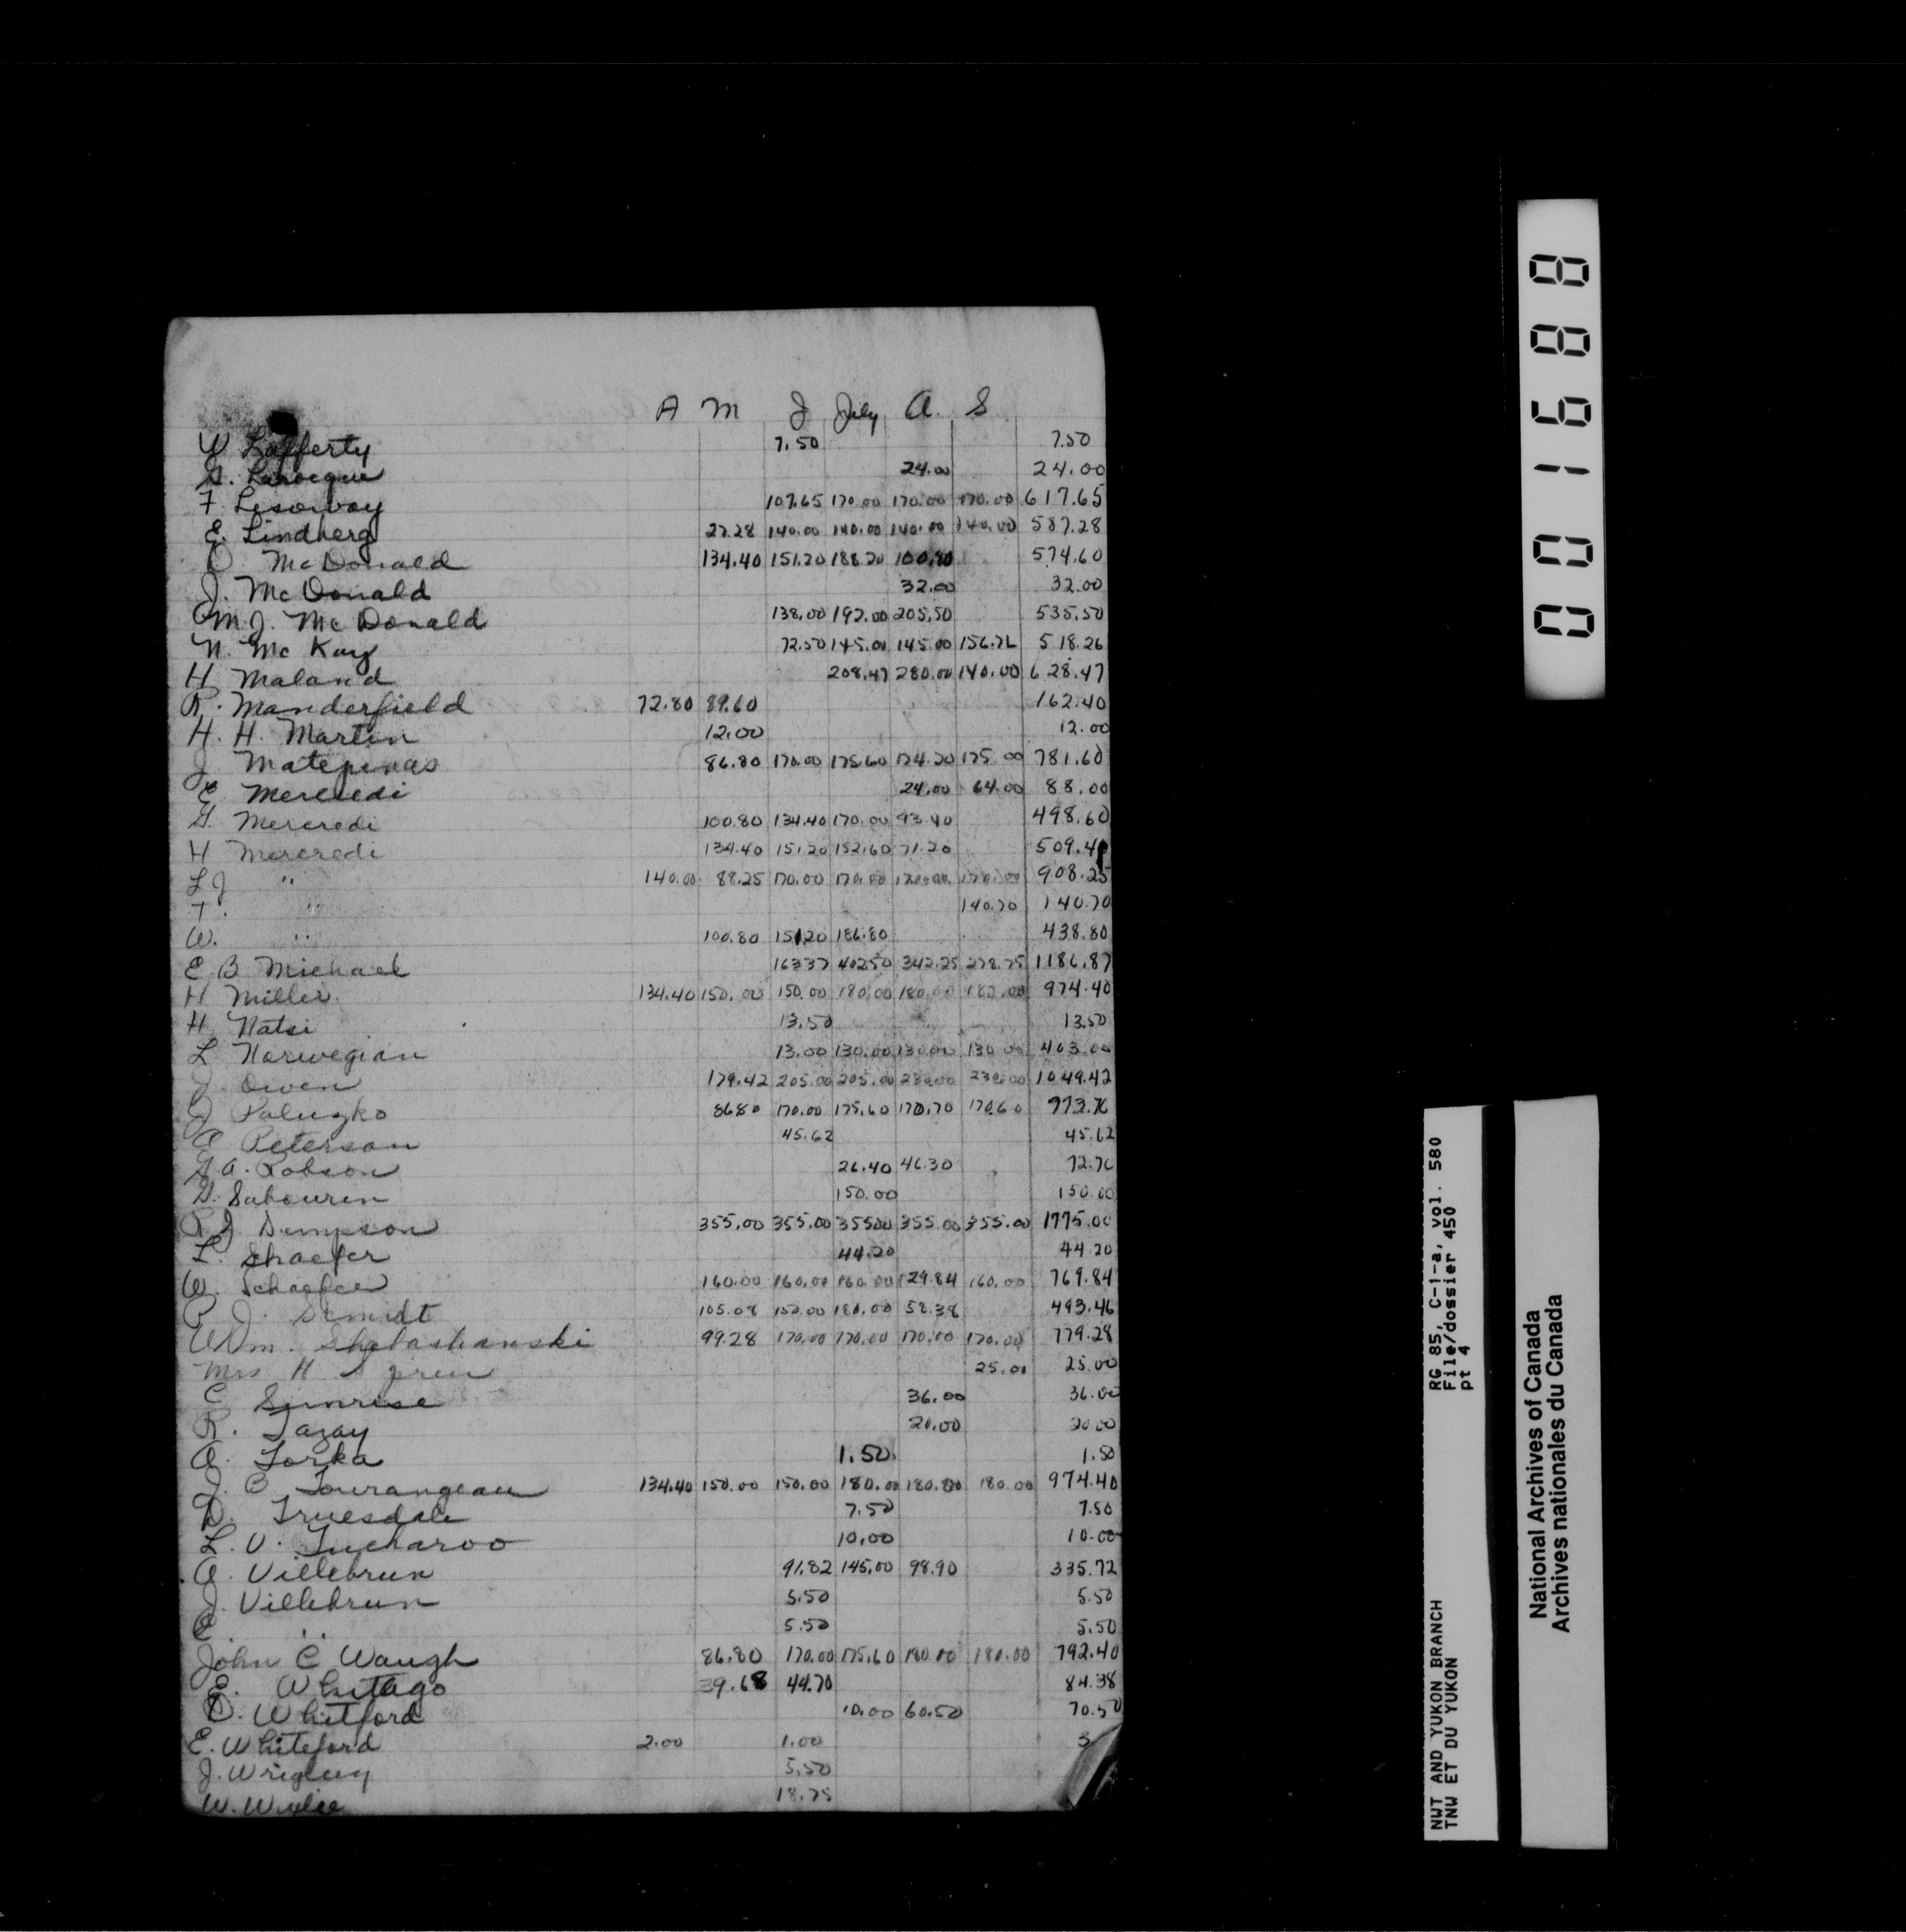 A M J July A. S
W Lafferty 7.50 7.50
G. Larocque 24.00 24.00
F Lesoway 107.65 170.00 170.00 170.00 617.65
E. Lindberg 27.28 140.00 140.00 140.00 140.00 587.28
D. McDonald 134.40 151.20 188.20 100.80 574.60
J. McDonald 32.00 32.00
M.J. McDonald 138.00 192.00 205.50 535.50
N. McKay 72.50 145.00 145.00 156.76 518.26
H Maland 208.47 280.00 140.00 628.47
R. Manderfield 72.80 89.60 162.40
H. H. Martin 12.00 12.00
J Matepinas 86.80 170.00 175.60 174.20 175.00 781.60
E. Mercredi 24.00 64.00 88.00
G. Mercredi 100.80 134.40 170.00 93.40 498.60
H Mercredi 134.40 151.20 152.60 71.20 509.40
L J " 140.00 88.25 170.00 170.00 170.00 170.00 908.25
T. " 140.70 140.70
W. " 100.80 151.20 186.80 438.80
E B Michael 163.37 402.50 342.25 278.75 1186.87
H Miller 134.40 150.00 150.00 180.00 180.00 180.00 974.40
H Natsi 13.50 13.50
L Norwegian 13.00 130.00 130.00 130.00 403.00
J. Owen 179.42 205.00 205.00 230.00 230.00 1049.42
J Paluzko 86.80 170.00 175.60 170.70 170.60 773.70
A Peterson 45.62 45.62
G A. Robson 26.40 46.30 72.70
G. Sabourin 150.00 150.00
R J Simpson 355.00 355.00 355.00 355.00 355.00 1775.00
L. Shaefer 44.20 44.20
W. Schaefer 160.00 160.00 160.00 129.84 160.00 769.84
P J. Scmidt 105.08 150.00 180.00 58.38 493.46
Wm. Shebashanski 99.28 170.00 170.00 170.00 170.00 779.28
Mrs H 25.00 25.00
C Sunrise 36.00 36.00
R. Tazay 20.00 20.00
A. Torka 1.50 1.50
J. B Tourangeau 134.40 150.00 150.00 180.00 180.00 180.00 974.40
D. Truesdale 7.50 7.50
L. V. Tucharoo 10.00 10.00
A. Villebrun 91.82 145.00 98.90 335.72
J. Villebrun 5.50 5.50
E. " 5.50 5.50
John C Waugh 86.80 170.00 175.60 180.00 180.00 792.40
E. Whitago 39.68 44.70 84.38
D. Whitford 10.00 60.50 70.50
E. Whiteford 2.00 1.00 3
J. Wrigley 5.50
W. Wylie 18.75
001688
RG 85, C-1-a, vol. 580
File/dossier 450
pt 4
NWT AND YUKON BRANCH
TNW ET DU YUKON
National Archives of Canada
Archives nationales du Canada